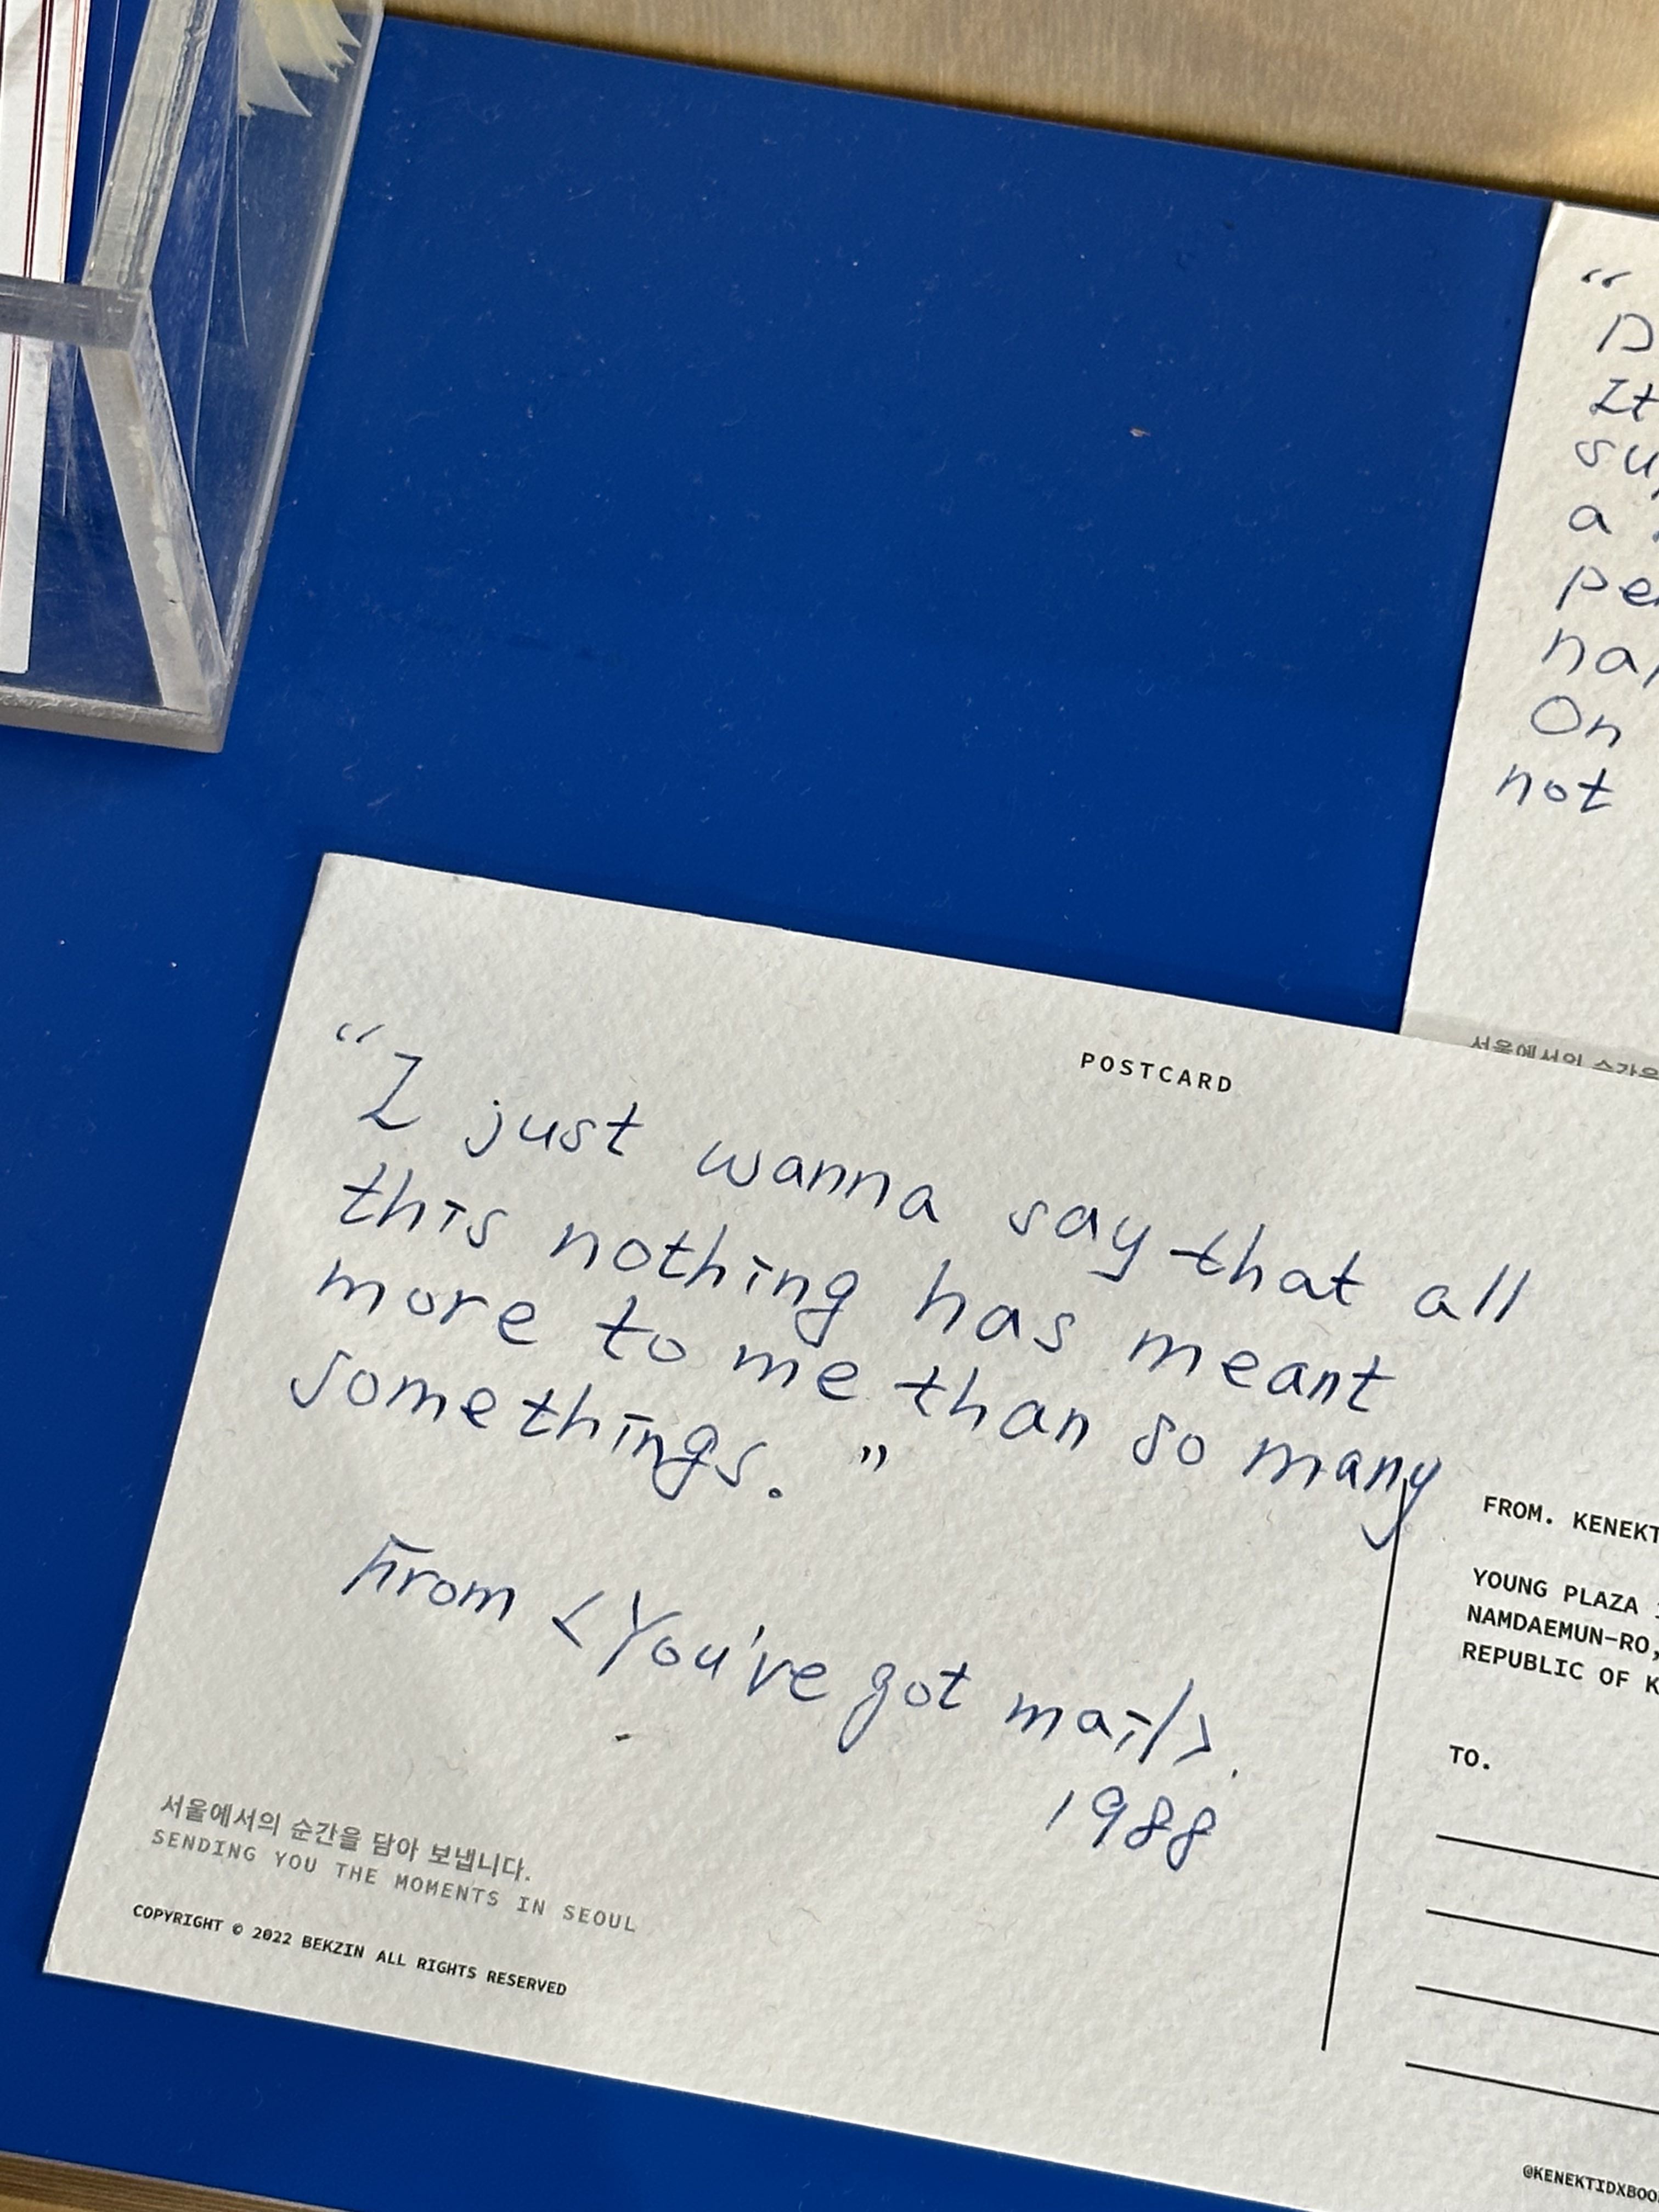 “
It
a
On
not
서울에서의 순간을
POSTCARD
“I just wanna say that all
this nothing has meant
more to me than so many
somethings.”
From <You've got mail>.
1988
서울에서의 순간을 담아 보냅니다.
SENDING YOU THE MOMENTS IN SEOUL
COPYRIGHT © 2022 BEKZIN ALL RIGHTS RESERVED
FROM. KENEKT
YOUNG PLAZA
NAMDAEMUN-RO,
REPUBLIC OF K
TO.
@KENEKTIDXBOO